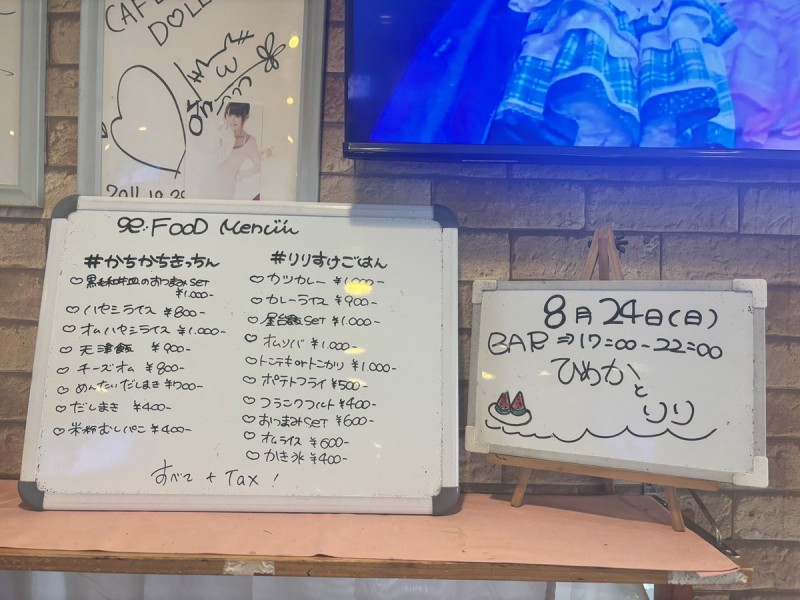 CAFE
DOLL
2011.10.29
FOOD Menu
#かちかちきっちん
黒毛和牛皿のおつまみSET
¥1.000-
ハヤシライス ¥800-
オムハヤシライス ¥1.000-
天津飯 ¥900-
チーズオム ¥800-
めんたいだしまき ¥700-
だしまき ¥400-
米粉むしパン ¥400-
#りりすけごはん
カツカレー ¥1.000-
カレーライス ¥900-
屋台飯SET ¥1.000-
オムソバ ¥1.000-
トンテキorトンカツ ¥1.000-
ポテトフライ ¥500-
フランクフルト ¥400-
おつまみSET ¥600-
オムライス ¥600-
かき氷 ¥400-
すべて + Tax !
8月24日(日)
BAR ⇒ 17:00-22:00
ひめか
と
りり